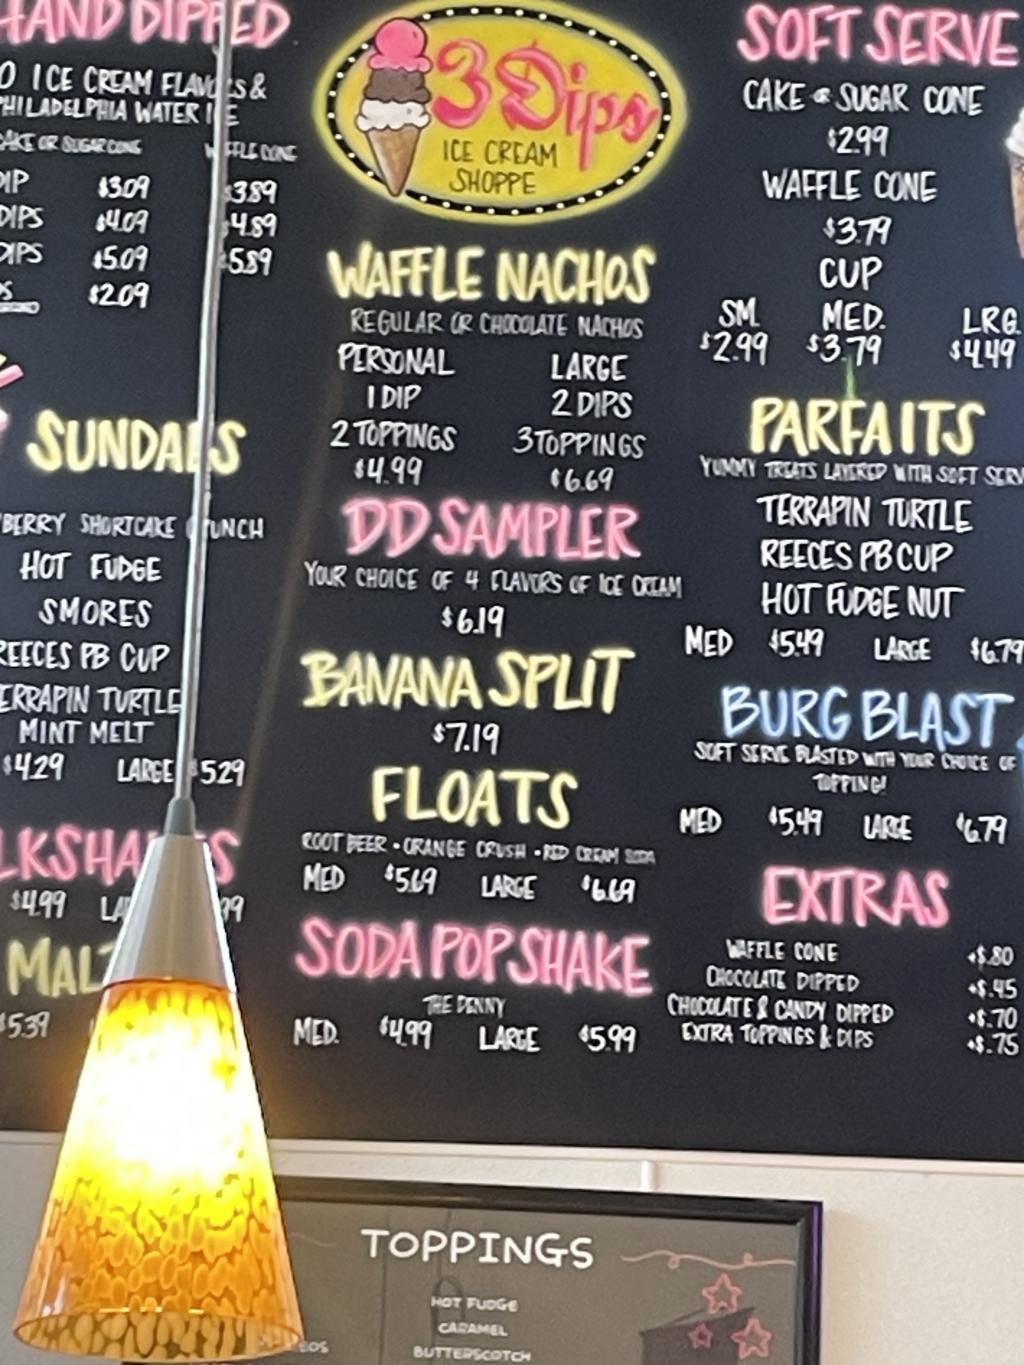 HAND DIPPED
ICE CREAM FLAVORS &
PHILADELPHIA WATER ICE
CAKE OR SUGAR CONE WAFFLE CONE
DIP $3.09 $3.89
DIPS $4.09 $4.89
DIPS $5.09 $5.89
$2.09
SUNDAES
BERRY SHORTCAKE CRUNCH
HOT FUDGE
SMORES
REECES PB CUP
TERRAPIN TURTLE
MINT MELT
$4.29 LARGE $5.29
MILKSHAKES
$4.99
MALT
$5.39
3 Dips
ICE CREAM
SHOPPE
WAFFLE NACHOS
REGULAR OR CHOCOLATE NACHOS
PERSONAL LARGE
1 DIP 2 DIPS
2 TOPPINGS 3 TOPPINGS
$4.99 $6.69
DD SAMPLER
YOUR CHOICE OF 4 FLAVORS OF ICE CREAM
$6.19
BANANA SPLIT
$7.19
FLOATS
ROOT BEER • ORANGE CRUSH • RED CREAM SODA
MED $5.69 LARGE $6.69
SODA POP SHAKE
THE DENNY
MED. $4.99 LARGE $5.99
SOFT SERVE
CAKE OR SUGAR CONE
$2.99
WAFFLE CONE
$3.79
CUP
SM. MED. LRG.
$2.99 $3.79 $4.49
PARFAITS
YUMMY TREATS LAYERED WITH SOFT SERV
TERRAPIN TURTLE
REECES PB CUP
HOT FUDGE NUT
MED $5.49 LARGE $6.79
BURG BLAST
SOFT SERVE BLASTED WITH YOUR CHOICE OF
TOPPING!
MED $5.49 LARGE $6.79
EXTRAS
WAFFLE CONE +$.80
CHOCOLATE DIPPED +$.45
CHOCOLATE & CANDY DIPPED +$.70
EXTRA TOPPINGS & DIPS +$.75
TOPPINGS
HOT FUDGE
CARAMEL
BUTTERSCOTCH